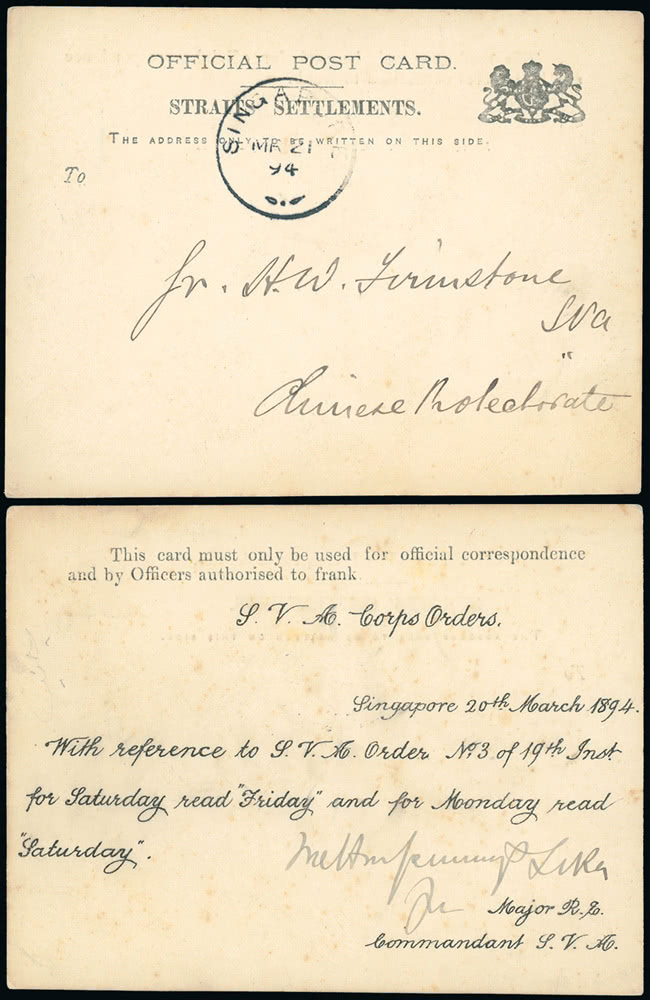 OFFICIAL POST CARD.
STRAITS SETTLEMENTS.
THE ADDRESS ONLY TO BE WRITTEN ON THIS SIDE.
SINGAPORE
MR 21
94
To
Gr. H.W. Firmstone
SVA
"
Chinese Protectorate
This card must only be used for official correspondence
and by Officers authorised to frank.
S. V. A. Corps Orders.
Singapore 20th March 1894.
With reference to S. V. A. Order No. 3 of 19th Inst
for Saturday read "Friday" and for Monday read
"Saturday".
for
Major R.E.
Commandant S. V. A.